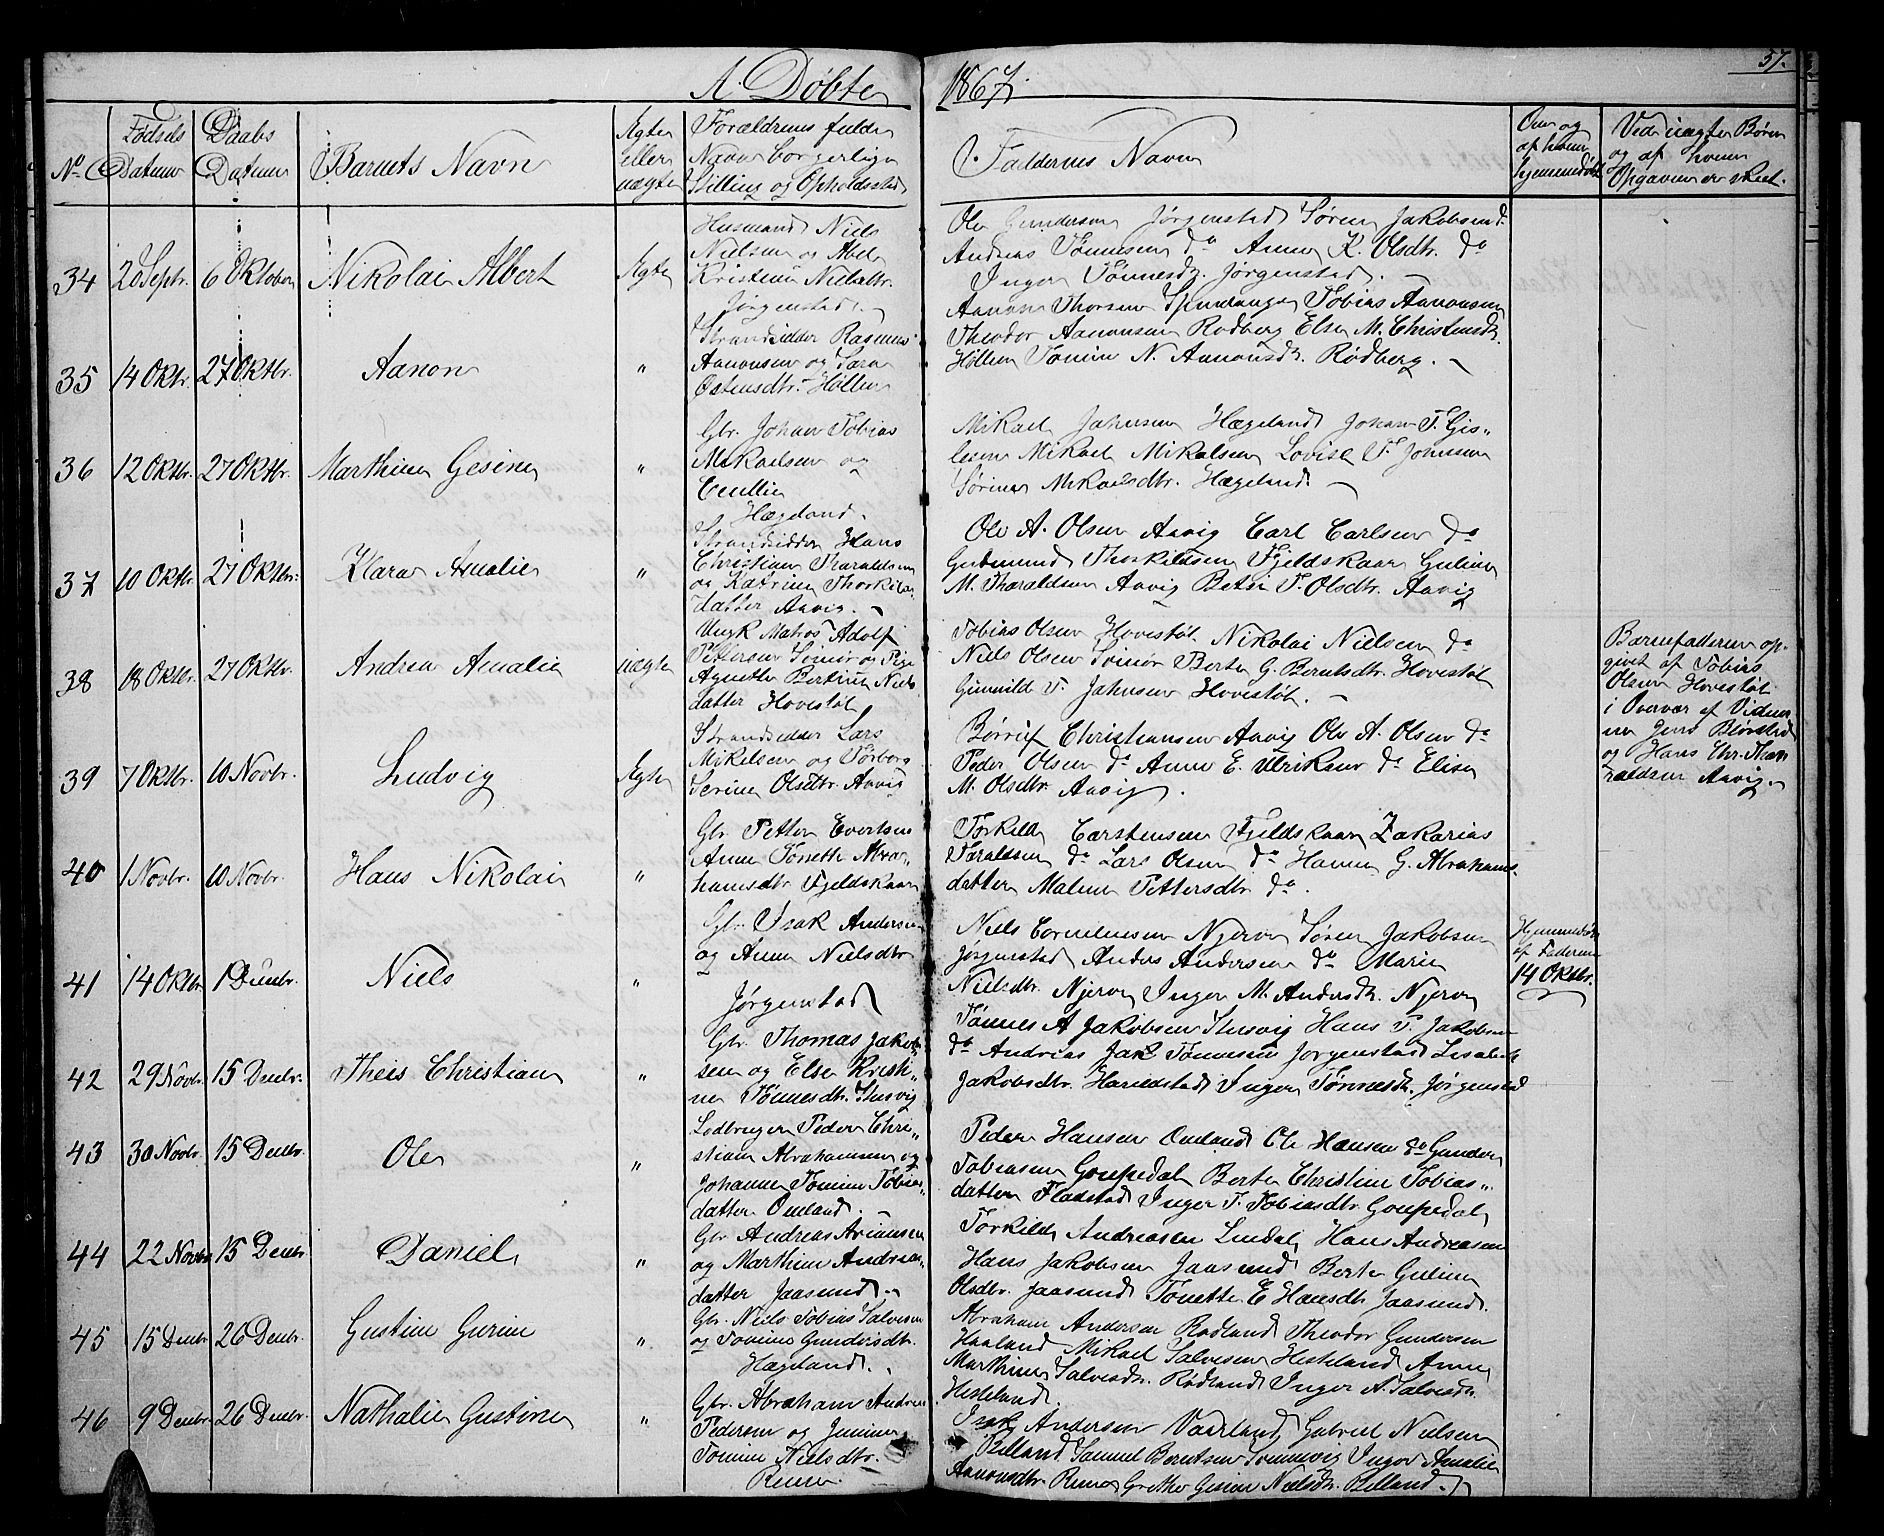 57.
A. Døbte 1867.
No
Fødsels Datum
Daabs Datum
Barnets Navn
Ægte eller uægte
Forældrenes fulde Navn borgerlige Stilling og Opholdssted
Faddernes Navne
Om og af hvem hjemmedøbt
Ved uægte Børn og af hvem Opgaven er skeet.
34 20 Septr. 6 Oktober Nikolai Albert Ægte
Husmand Niels
Nielsen og Abel
Kristine Nielsdtr.
Jørgenstad.
Ole Gundersen Jørgenstad Søren Jakobsen do
Andreas Tønnesen do Anne K. Olsdtr. do
Inger Tønnesdtr. Jørgenstad.
35 14 Oktr. 27 Oktbr. Aanon "
Strandsidder Rasmus
Aanonsen og Sara
Østensdtr. Høllen
Aanon Thorsen Spinrange Tobias Aanonsen
Theodor Aanonsen Rødberg Else M. Christensdtr.
Høllen Tomine N. Aanonsdtr. Rødberg.
36 12 Oktbr. 27 Oktbr. Marthine Gesine "
Gbr. Johan Tobias
Mikaelsen og
Emilie
Hægeland.
Mikael Jahnsen Hægeland Johan T. Gis„
lesen Mikael Mikalsen Lovise T. Johnsen
Sørine Mikaelsdtr. Hægeland.
37 10 Oktbr. 27 Oktbr. Klara Amalie "
Strandsidder Hans
Christian Tharaldsen
og Katrine Thorkilds
datter Aavig.
Ole A. Olsen Aavig Carl Carlsen do
Gudmund Thorkildsen Fjeldskaar Guline
M. Tharaldsen Aavig Betsi T. Olsdtr. Aavig
38 18 Oktbr. 27 Oktbr. Andrea Amalie uægte
Ungk. Matros Adolf
Pettersen Svinør og Pige
Agnethe Bertine Niels
datter Hovestøl
Tobias Olsen Hovestøl Nikolai Nielsen do
Niels Olsen Svinør Berte G. Berntsdtr. Hovestøl
Gunnild T. Jahnsen Hovestøl.
Barnefatteren op-
givet af Tobias
Olsen Hovestøl
i Overvær af Vidner-
ne Jens Bjørstad
og Hans Chr. Tha-
raldsen Aavig.
39 7 Oktbr. 10 Novbr. Ludvig Ægte
Strandsidder Lars
Mikelsen og Torborg
Serine Olsdtr. Aavig
Børrüf Christiansen Aavig Ole A. Olsen do
Peder Olsen do Anne E. Ulriksen do Elise
M. Olsdtr. Aavig.
40 1 Novbr. 10 Novbr. Hans Nikolai "
Gbr. Petter Evertsen
Anne Tonette Abra„
hamsdtr. Fjeldskaar
Torkild Carstensen Fjeldskaar Zakarias
Taraldsen do Lars Olsen do Hanne G. Abrahams-
datter Malene Pettersdtr. do.
41 14 Oktbr. 1 Decbr. Niels "
Gbr. Isak Andersen
og Anne Nielsdtr.
Jørgenstad
Niels Corneliusen Njerve Søren Jakobsen
Jørgenstad Anders Andersen do Marie
Nielsdtr. Njerve Inger M. Andersdtr. Njerve
Hjemmedøbt
af Faderen
14 Oktbr.
42 29 Novbr. 15 Decbr. Theis Christian "
Gbr. Thomas Jakob
sen og Else Kristi„
ne Tønnesdtr. Stusvig
Tønnes A Jakobsen Stusvig Hans T. Jakobsen
do Andreas Jak. Tønnesen Jørgenstad Lisabeth
Jakobsdtr. Harkestad Inger Tønnesdtr. Jørgenstad
43 30 Novbr. 15 Decbr. Ole "
Lodbruger Peder Chri„
stian Abrahamsen og
Johanne Tomine Tobias„
datter Omland.
Peder Hansen Omland Ole Hansen do Gunder
Tobiasen Goupedal Berte Christine Tobias„
datter Fladstad Inger T. Tobiasdtr. Goupedal
44 22 Novbr. 15 Decbr. Daniel "
Gbr. Andreas Arianssen
og Marthine Andreas„
datter Jaasund.
Torkild Andreasen Lindal Hans Andreasen
Hans Jakobsen Jaasund Berte Guline
Olsdtr. Jaasund Tonette E Hansdtr. Jaasund.
45 15 Decbr. 26 Decbr. Gustine Gurine "
Gbr. Niels Tobias Salvesen
og Tomine Gundersdtr.
Hægeland.
Abraham Andersen Rødland Theodor Gundersen
Haaland Mikael Salvesen Hesteland Anne
Marthine Salvesdtr. Rødland Inger A. Salvesdtr.
Hesteland.
46 9 Decbr. 26 Decbr. Nathalie Gustine "
Gbr. Abraham Andreas
Pedersen og Jenine
Tomine Nielsdtr.
Reme.
Isak Andersen Vaarland Gabriel Nielsen
Pilland Samuel Berntsen Tomevig Inger Amalie
Aanonsdtr. Reme Grethe Gesine Nielsdtr. Pilland.